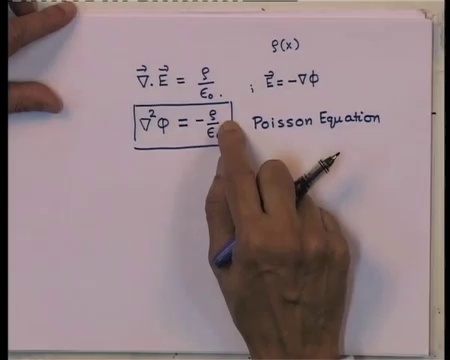 ρ(x)
∇⃗. E⃗ = ρ/ε₀. ; E⃗ = -∇Φ
∇⃗²Φ = -ρ/ε Poisson Equation